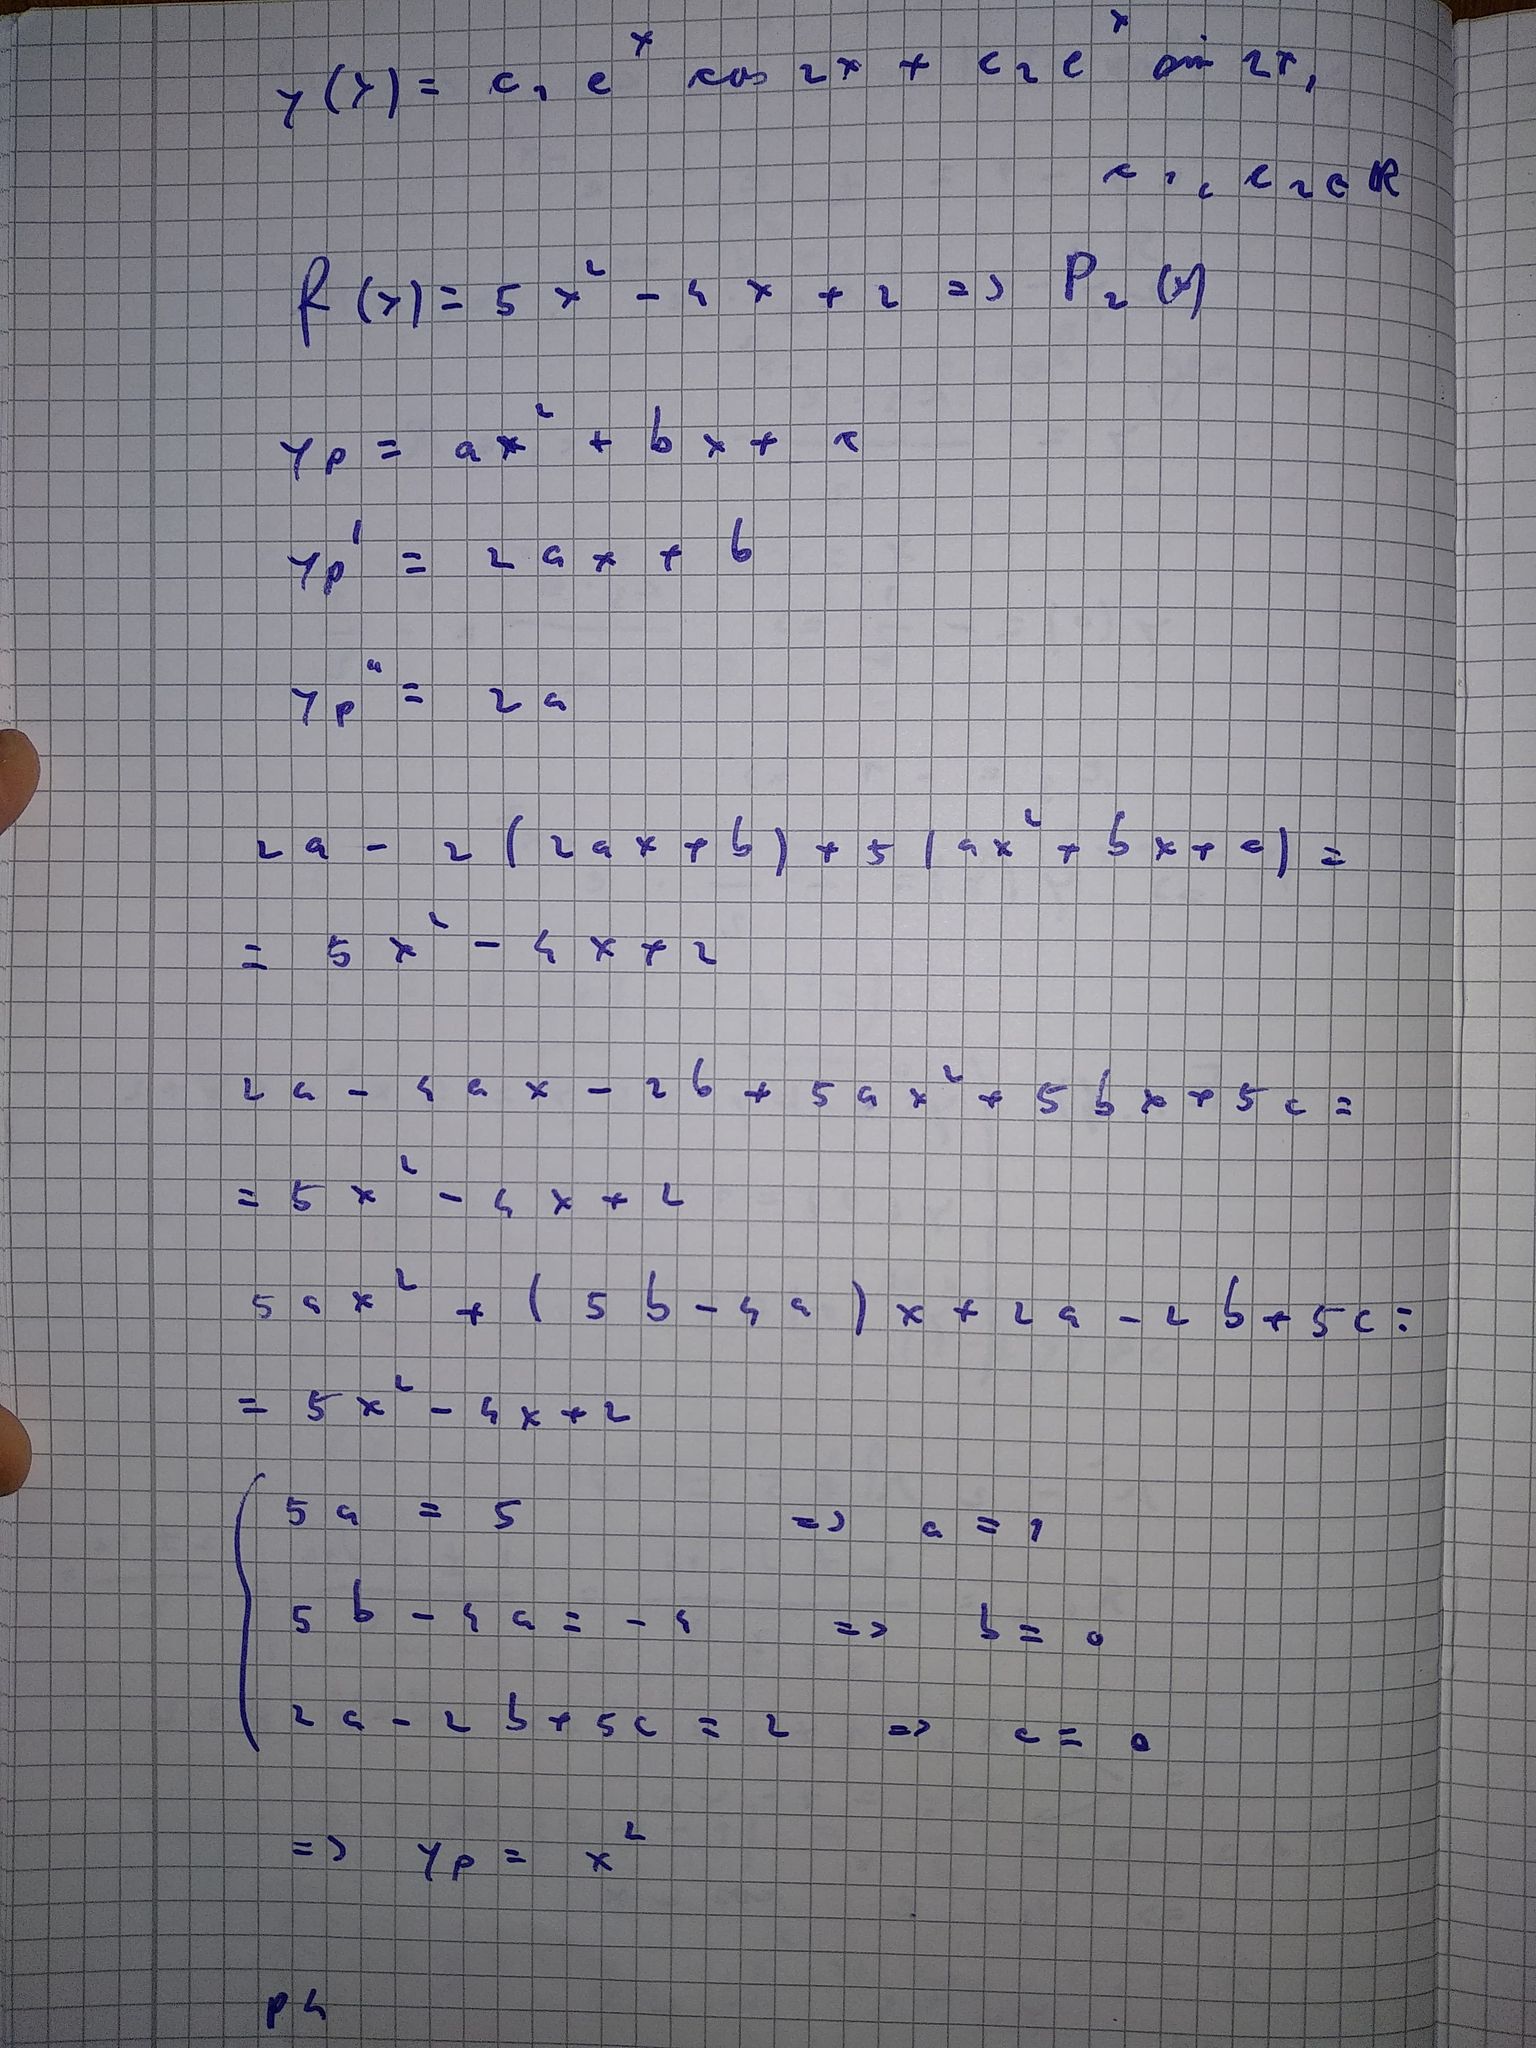 y(x) = c₁ eˣ cos 2x + c₂ eˣ sin 2x,
c₁, c₂ ∈ ℝ
f(x) = 5x² - 4x + 2 => P₂(x)
yp = ax² + bx + c
yp' = 2ax + b
yp" = 2a
2a - 2(2ax + b) + 5(ax² + bx + c) =
= 5x² - 4x + 2
2a - 4ax - 2b + 5ax² + 5bx + 5c =
= 5x² - 4x + 2
5ax² + (5b - 4a)x + 2a - 2b + 5c =
= 5x² - 4x + 2
5a = 5 => a = 1
5b - 4a = -4 => b = 0
2a - 2b + 5c = 2 => c = 0
=> yp = x²
p4